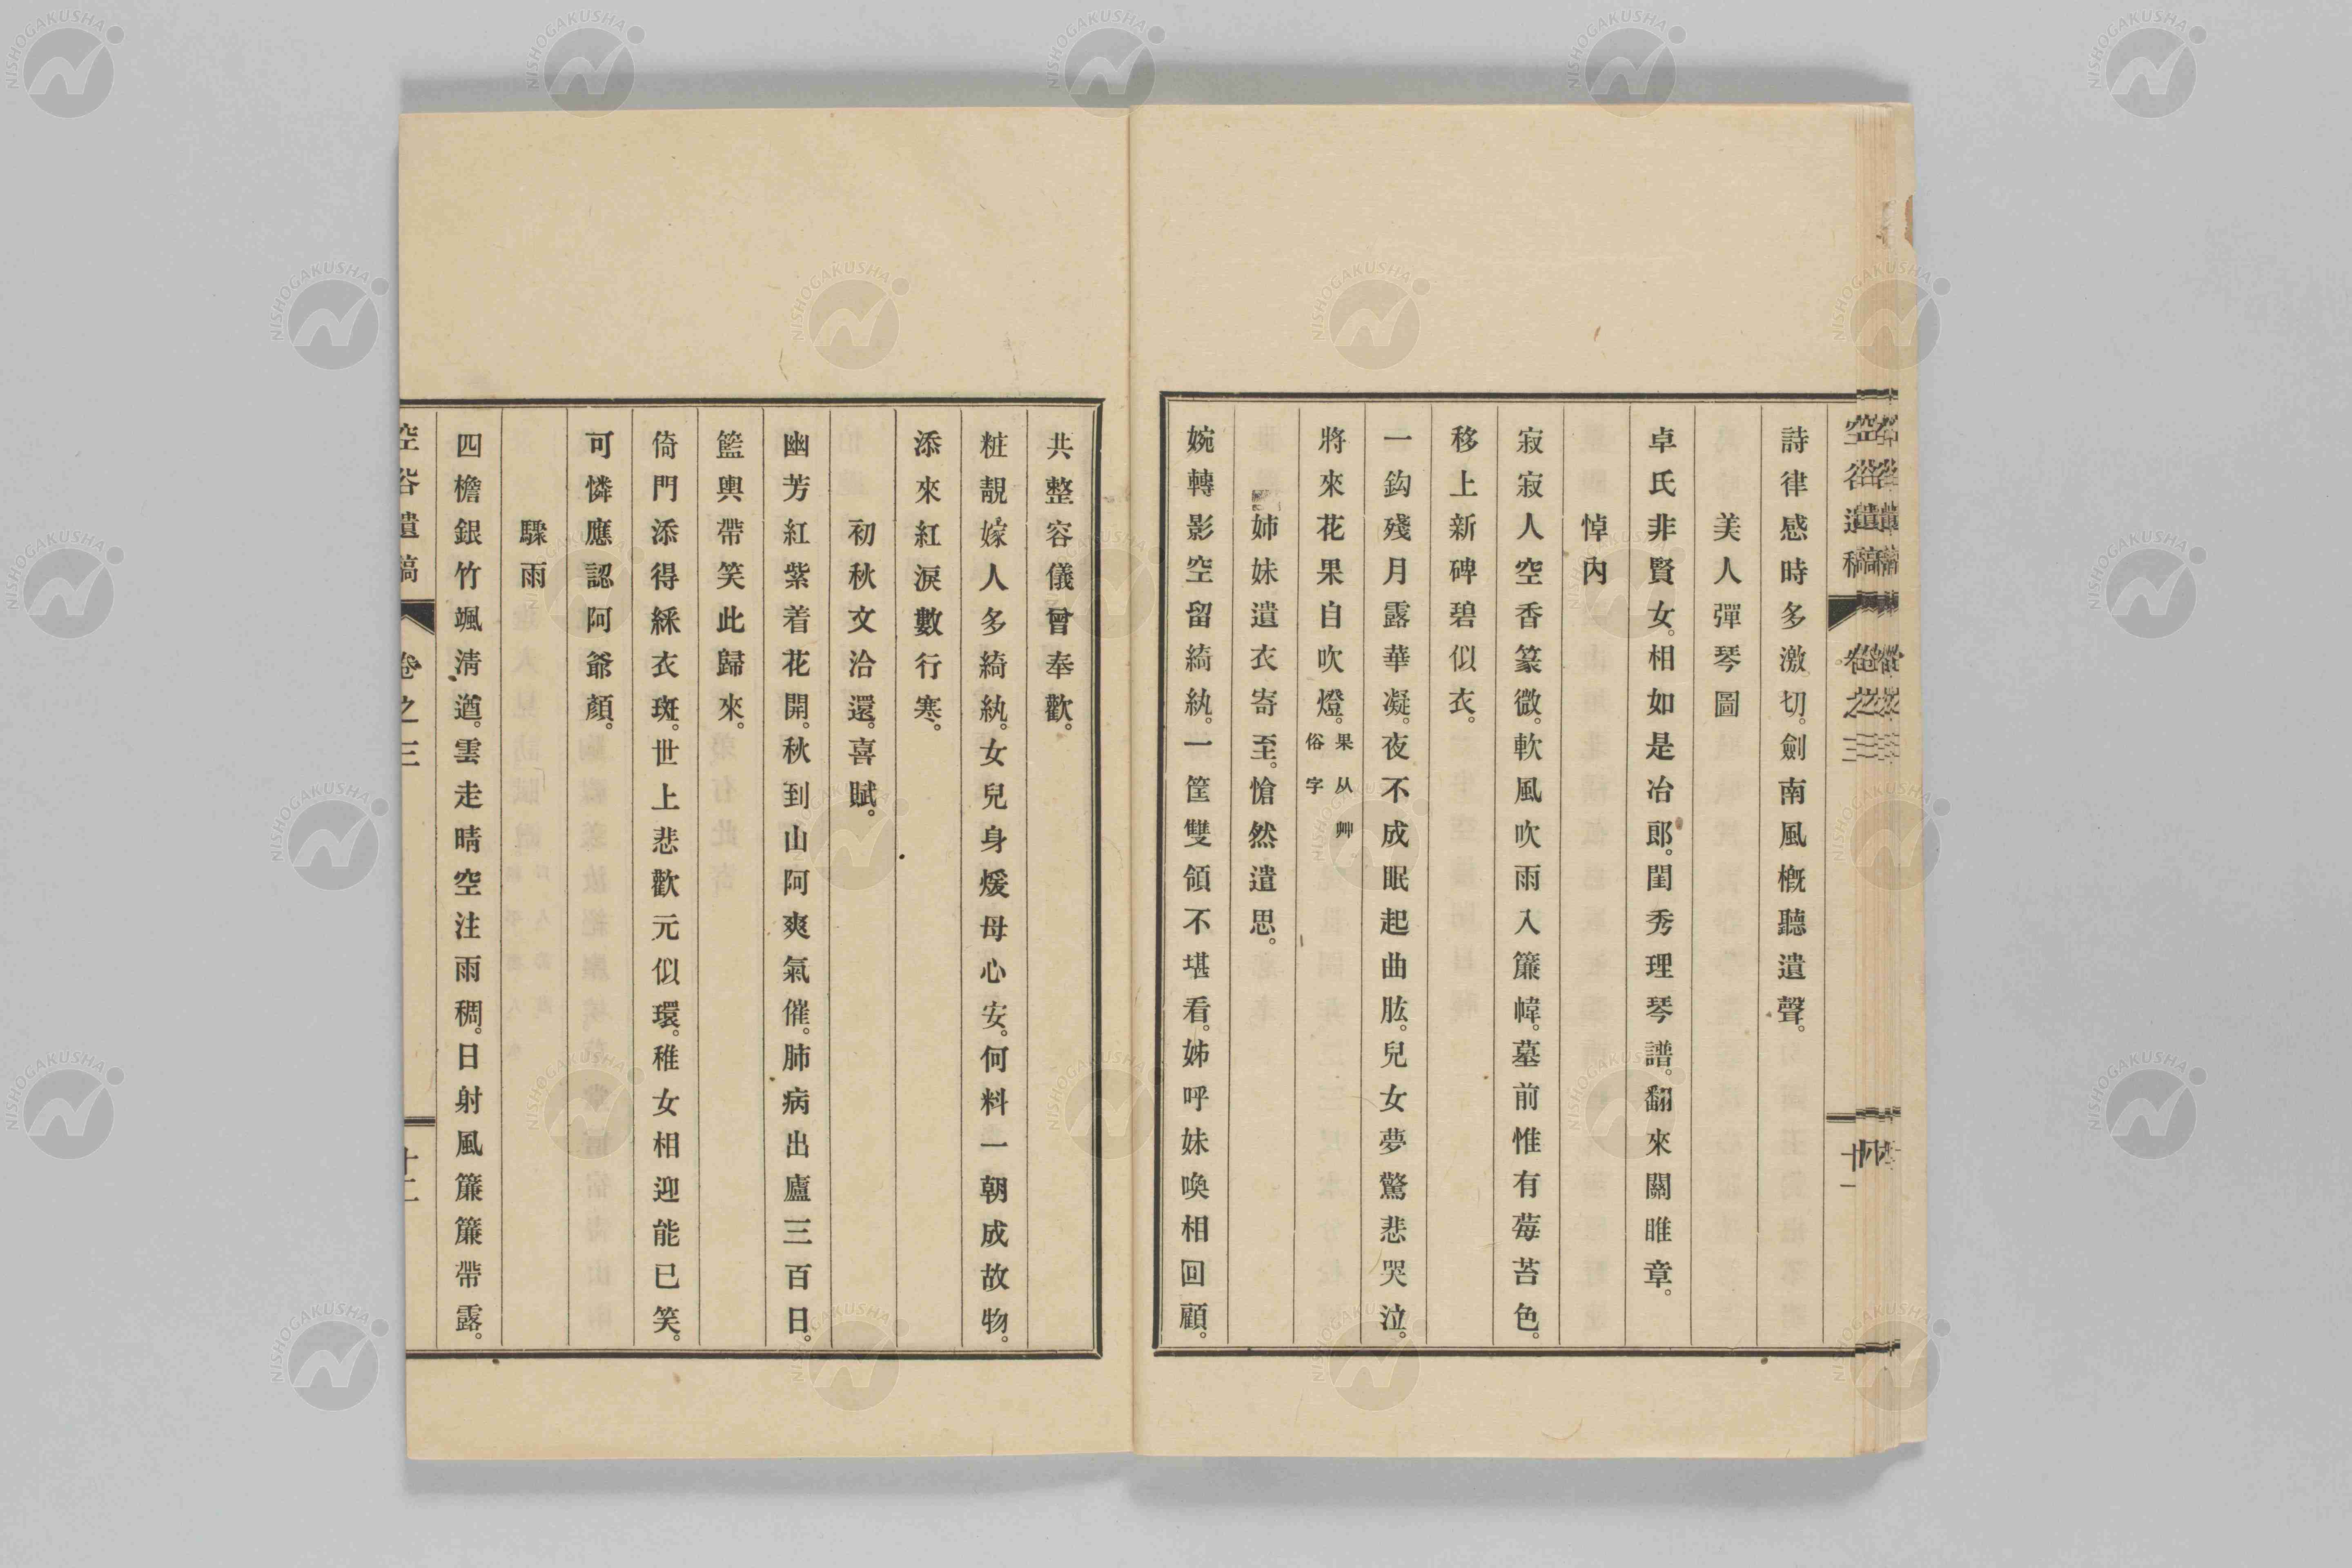 詩律感時多激切。劍南風槪聽遺聲。
美人彈琴圖
卓氏非賢女。相如是冶郎。閨秀理琴譜。翻來關雎章。
悼內
寂寂人空香篆微。軟風吹雨入簾幃。墓前惟有莓苔色。
移上新碑碧似衣。
一鈎殘月露華凝。夜不成眠起曲肱。兒女夢驚悲哭泣。
將來花果自吹燈。果从艸俗字
姉妹遺衣寄至。愴然遣思。
婉轉影空留綺紈。一筐雙領不堪看。姊呼妹喚相回顧。
共整容儀曾奉歡。
粧靚嫁人多綺紈。女兒身煖母心安。何料一朝成故物。
添來紅淚數行寒。
初秋文治還。喜賦。
幽芳紅紫着花開。秋到山阿爽氣催。肺病出廬三百日。
籃輿帶笑此歸來。
倚門添得綵衣斑。世上悲歡元似環。稚女相迎能已笑。
可憐應認阿爺顏。
驟雨
四檐銀竹颯淸遒。雲走晴空注雨稠。日射風簾簾帶露。
空谷遺稿
卷之三
十二